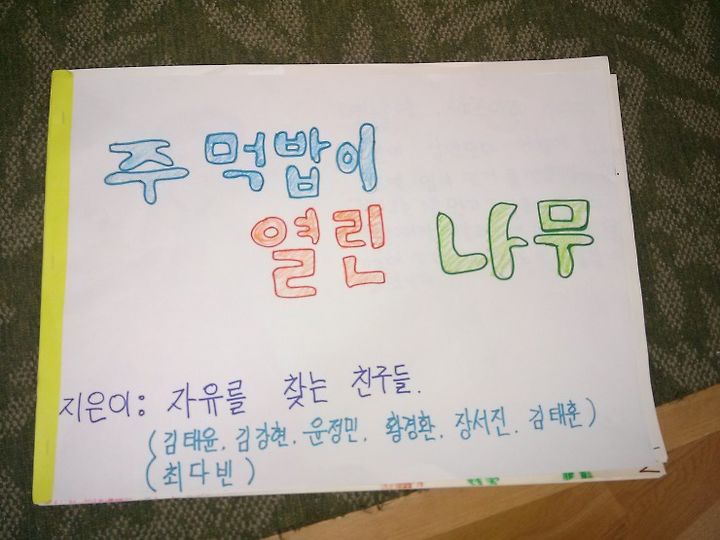 주먹밥이
열린 나무
지은이: 자유를 찾는 친구들.
(김태윤. 김강현. 윤정민. 황경환. 장서진. 김태훈)
(최다빈)